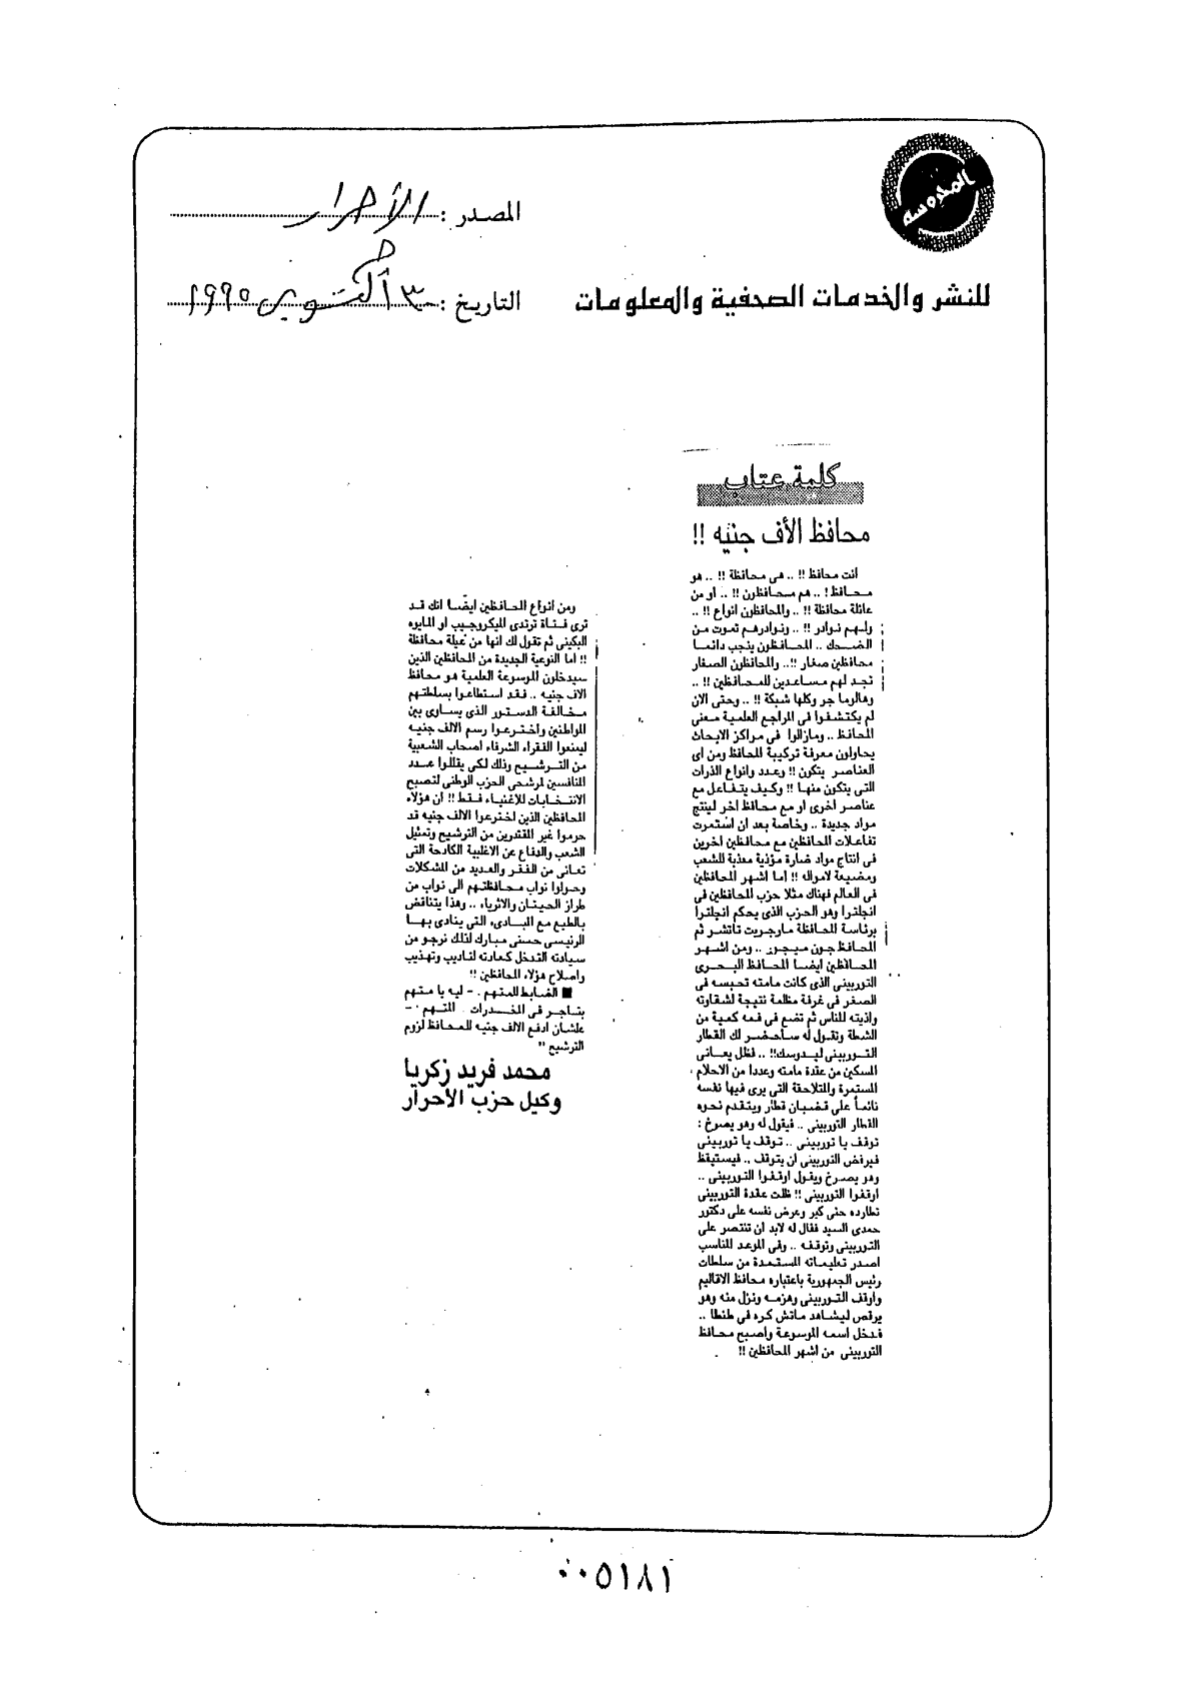 المحروسة
المصدر : الأحرار
للنشر والخدمات الصحفية والمعلومات
التاريخ : ٣ أكتوبر ١٩٩٥
كلمة عتاب
محافظ الألف جنيه !!
أنت محافظ !! .. هى محافظة !! .. هو
محافظ ! .. هم محافظون !! .. او من
عائلة محافظة !! .. والمحافظون انواع !! ..
ولهم نوادر !! .. ونوادرهم تموت من
الضحك .. المحافظون ينجب دائما
محافظين صغار !! .. والمحافظون الصغار
تجد لهم مساعدين للمحافظين !! ..
وهالوما جر وكلها شبكة !! .. وحتى الان
لم يكتشفوا فى المراجع العلمية معنى
المحافظ .. ومازالوا فى مراكز الابحاث
يحاولون معرفة تركيبة المحافظ ومن اى
العناصر يتكون !! وعدد وانواع الذرات
التى يتكون منها !! وكيف يتفاعل مع
عناصر اخرى او مع محافظ اخر لينتج
مواد جديدة .. وخاصة بعد ان استمرت
تفاعلات المحافظين مع محافظين اخرين
فى انتاج مواد ضارة مؤذية معذبة للشعب
ومضيعة لامواله !! اما اشهر المحافظين
فى العالم فهناك مثلا حزب المحافظين فى
انجلترا وهو الحزب الذى يحكم انجلترا
برئاسة المحافظة مارجريت تاتشر ثم
المحافظ جون ميجور .. ومن اشهر
المحافظين ايضا المحافظ البحرى
التوربينى الذى كانت مامته تحبسه فى
الصغر فى غرفة مظلمة نتيجة لشقاوته
واذيته للناس ثم تضع فى فمه كمية من
الشطة وتقول له ساحضر لك القطار
التوربينى ليدوسك!! .. فظل يعانى
المسكين من عقدة مامته وعددا من الاحلام
المستمرة والمتلاحقة التى يرى فيها نفسه
نائماً على قضبان قطار ويتقدم نحوه
القطار التوربينى .. فيقول له وهو يصرخ :
توقف يا توربينى .. توقف يا توربينى
فيرفض التوربينى ان يتوقف .. فيستيقظ
وهو يصرخ ويقول اوقفوا التوربينى ..
اوقفوا التوربينى !! ظلت عقدة التوربينى
تطارده حتى كبر وعرض نفسه على دكتور
حمدى السيد فقال له لابد ان تنتصر على
التوربينى وتوقفه .. وفى الموعد المناسب
اصدر تعليماته المستمدة من سلطات
رئيس الجمهورية باعتباره محافظ الاقاليم
واوقف التوربينى وهزمه ونزل منه وهو
يرقص ليشاهد ماتش كره فى طنطا ..
فدخل اسمه الموسوعة واصبح محافظ
التوربينى من اشهر المحافظين !!
ومن انواع المحافظين ايضا انك قد
ترى فتاة ترتدى الميكروجيب او المايوه
البكينى ثم تقول لك انها من عيلة محافظة
!! اما النوعية الجديدة من المحافظين الذين
سيدخلون الموسوعة العلمية هو محافظ
الاف جنيه .. فقد استطاعوا بسلطتهم
مخالفة الدستور الذى يساوى بين
المواطنين واخترعوا رسم الالف جنيه
ليمنعوا الفقراء الشرفاء اصحاب الشعبية
من الترشيح وذلك لكى يقللوا عدد
المنافسين لمرشحى الحزب الوطنى لتصبح
الانتخابات للاغنياء فقط !! ان هؤلاء
المحافظين الذين اخترعوا الالف جنيه قد
حرموا غير المقتدرين من الترشيح وتمثيل
الشعب والدفاع عن الاغلبية الكادحة التى
تعانى من الفقر والعديد من المشكلات
وحولوا نواب محافظتهم الى نواب من
طراز الحيتان والاثرياء .. وهذا يتناقض
بالطبع مع المبادىء التى ينادى بها
الرئيسى حسنى مبارك لذلك نرجو من
سيادته التدخل كعادته لتاديب وتهذيب
واصلاح هؤلاء المحافظين !!
■ الضابط للمتهم : - ليه يا متهم
بتاجر فى المخدرات . المتهم : -
علشان ادفع الالف جنيه للمحافظ لزوم
الترشيح "
محمد فريد زكريا
وكيل حزب الأحرار
٠٠٥١٨١